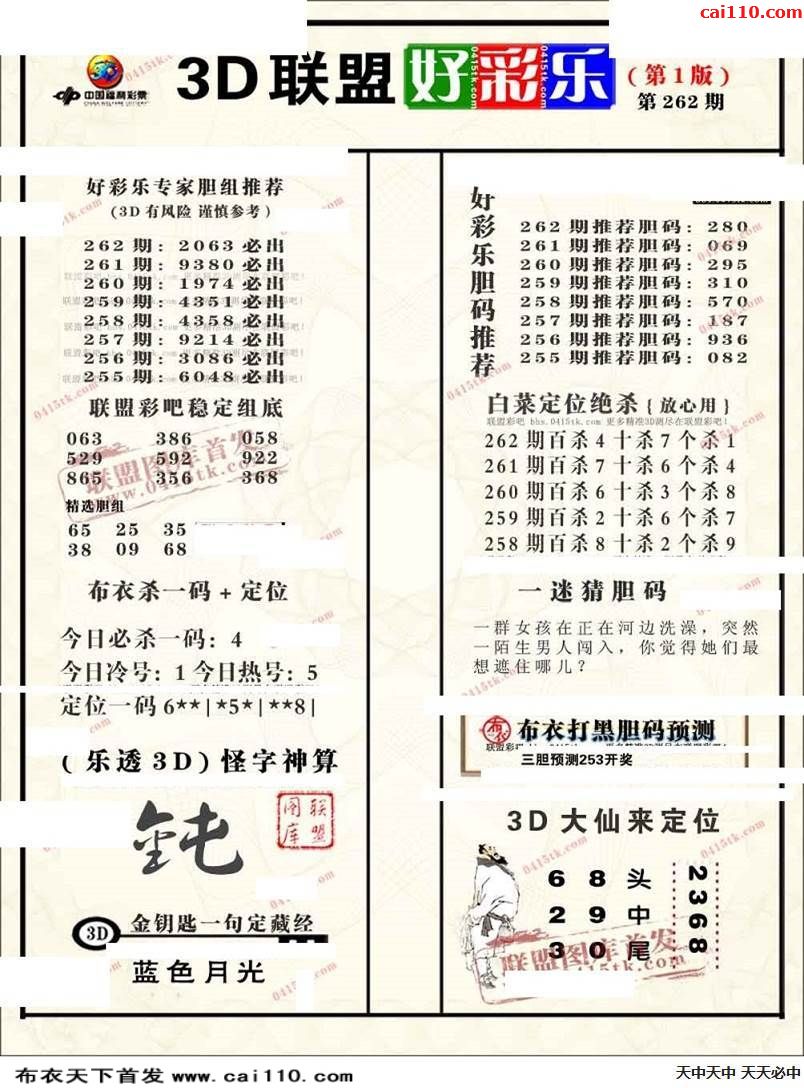 cai110.com
中国福利彩票
CHINA WELFARE LOTTERY
3D联盟好彩乐
(第1版)
第262期
好彩乐专家胆组推荐
(3D有风险 谨慎参考)
262期: 2063必出
261期: 9380必出
260期: 1974必出
259期: 4351必出
258期: 4358必出
257期: 9214必出
256期: 3086必出
255期: 6048必出
联盟彩吧稳定组底
063 386 058
529 592 922
865 356 368
精选胆组
65 25 35
38 09 68
联盟图库首发
www.0415tk.com
布衣杀一码+定位
今日必杀一码: 4
今日冷号: 1 今日热号: 5
定位一码 6**|*5*|**8|
(乐透3D)怪字神算
钝
联盟图库
3D
金钥匙一句定藏经
蓝色月光
好彩乐胆码推荐
262期推荐胆码: 280
261期推荐胆码: 069
260期推荐胆码: 295
259期推荐胆码: 310
258期推荐胆码: 570
257期推荐胆码: 187
256期推荐胆码: 936
255期推荐胆码: 082
白菜定位绝杀{放心用}
联盟彩吧 bbs.0415tk.com 更多精准3D测尽在联盟彩吧!
262期百杀4十杀7个杀1
261期百杀7十杀6个杀4
260期百杀6十杀3个杀8
259期百杀2十杀6个杀7
258期百杀8十杀2个杀9
一迷猜胆码
一群女孩在正在河边洗澡，突然
一陌生男人闯入，你觉得她们最
想遮住哪儿?
布衣
布衣打黑胆码预测
三胆预测253开奖
3D大仙来定位
6 8 头
2 9 中
3 0 尾
2368
联盟图库首发
0415tk.com
布衣天下首发 www.cai110.com
天中天中 天天必中